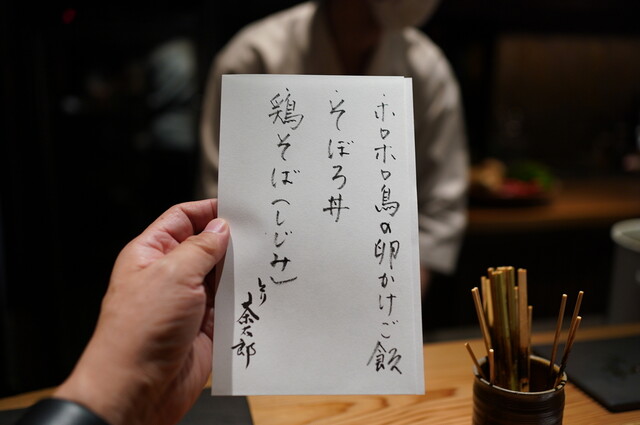 ホロホロ鳥の卵かけご飯
そぼろ丼
鶏そば（しじみ）
とり茶太郎